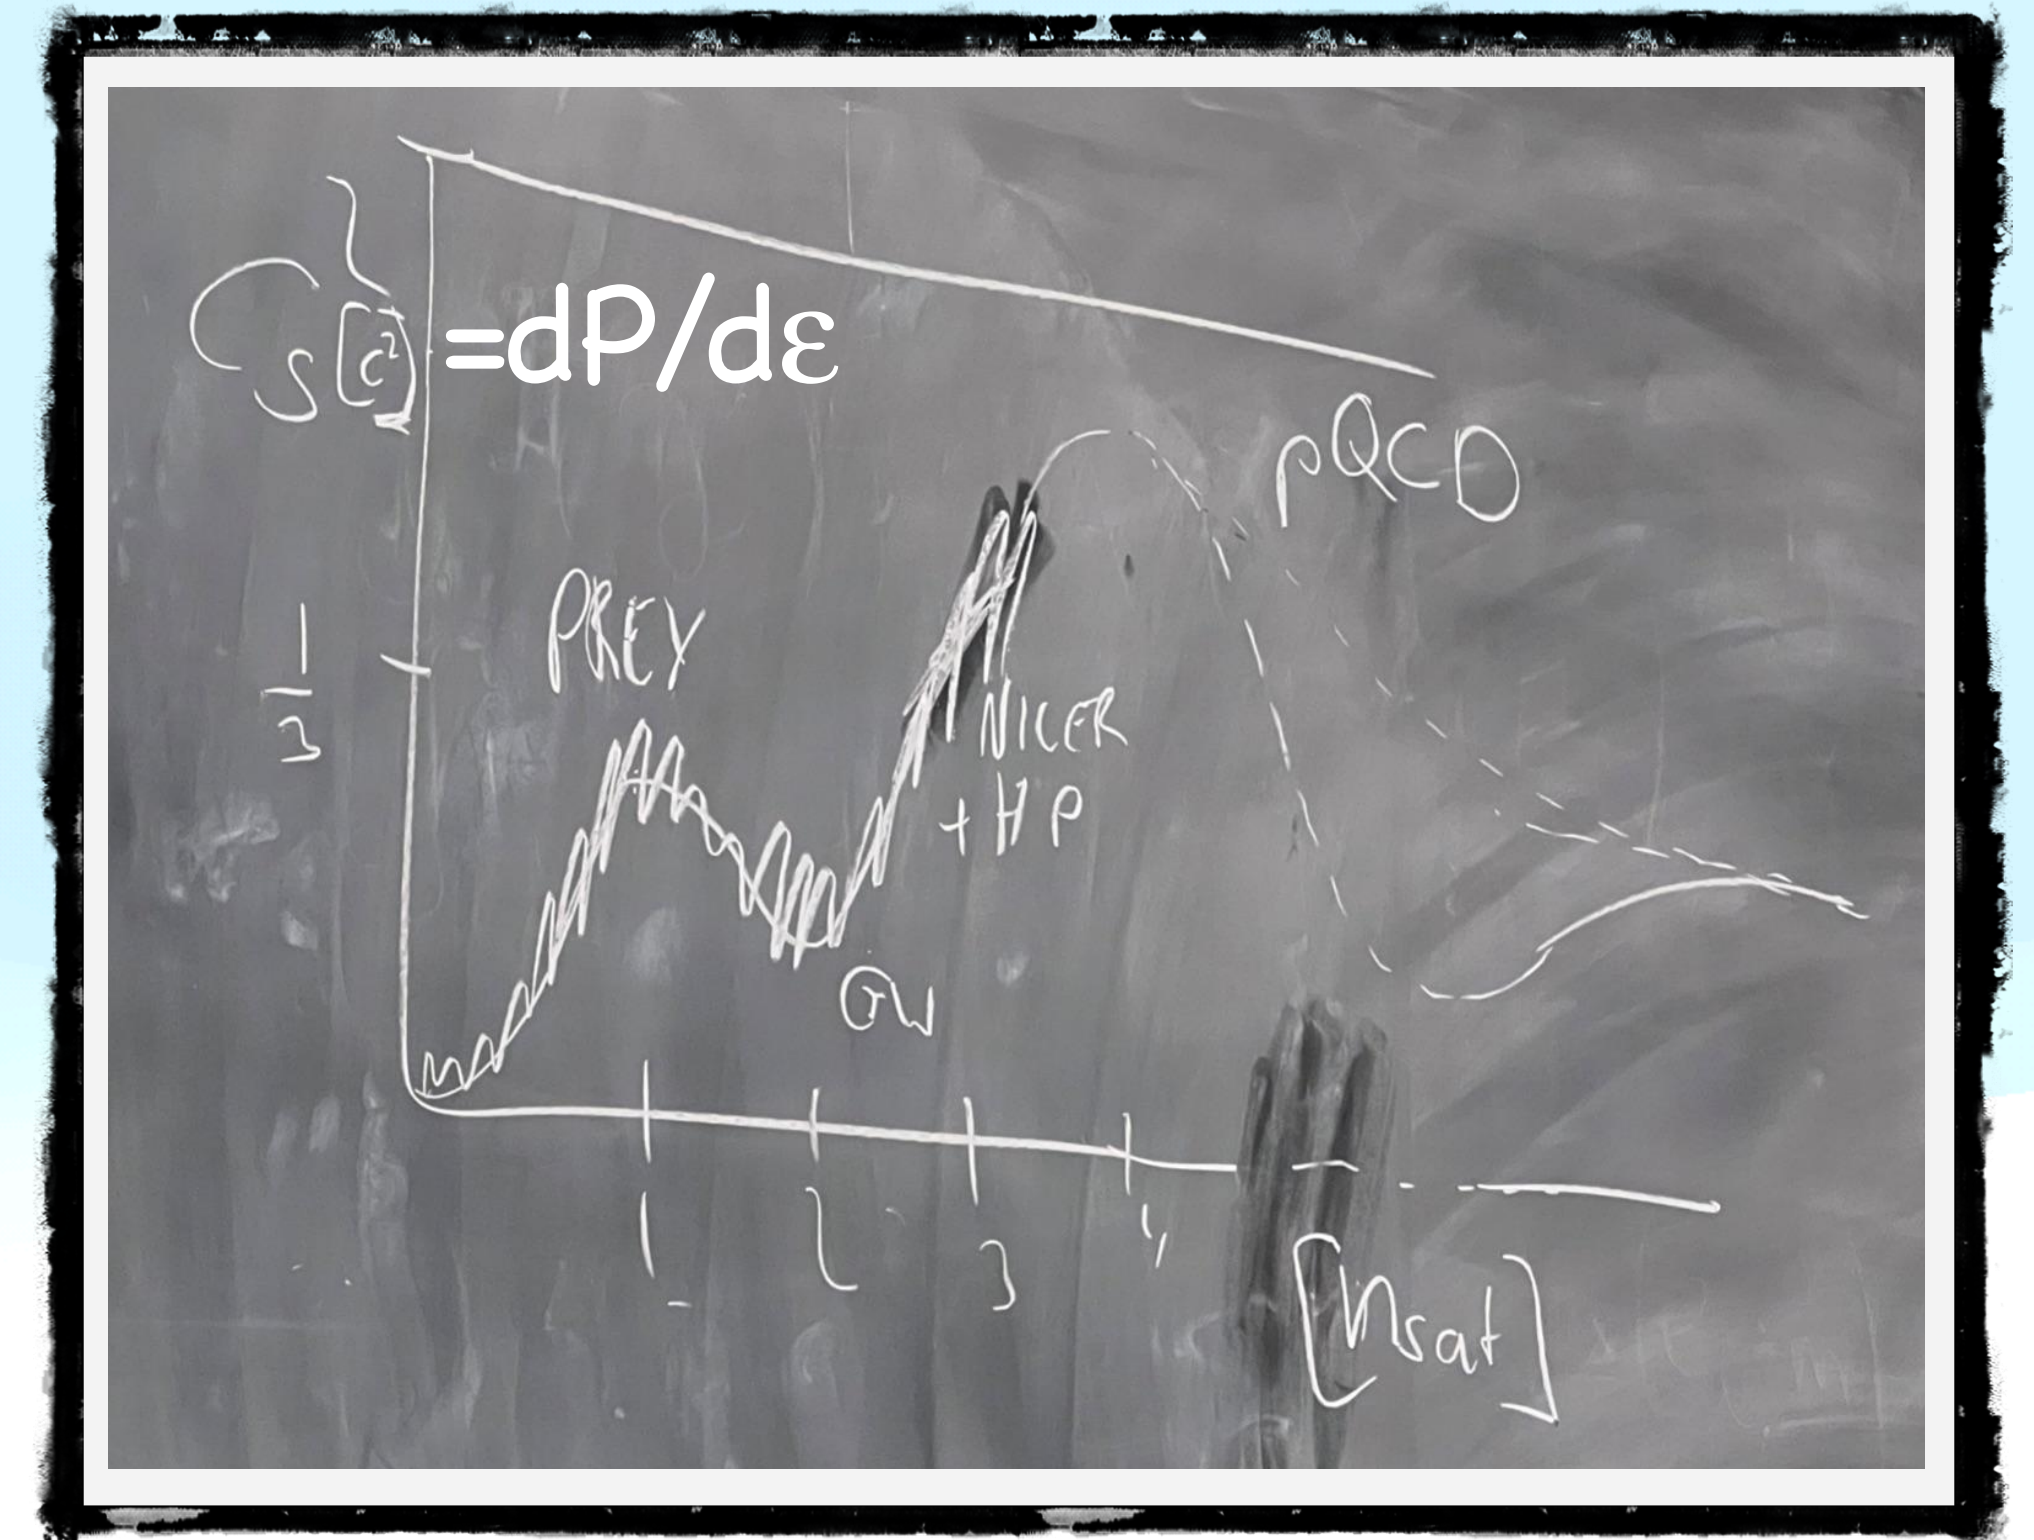 Cs²[c²] =dP/dε
pQCD
PREY
1/3
NICER
+HP
GW
1 2 3 4
[nsat]